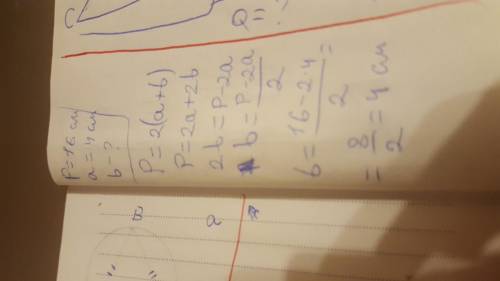 Q = ?
P = 16 см
a = 4 см
b - ?
P = 2(a+b)
P = 2a + 2b
2b = P - 2a
b = P - 2a / 2
b = 16 - 2·4 / 2 =
= 8 / 2 = 4 см